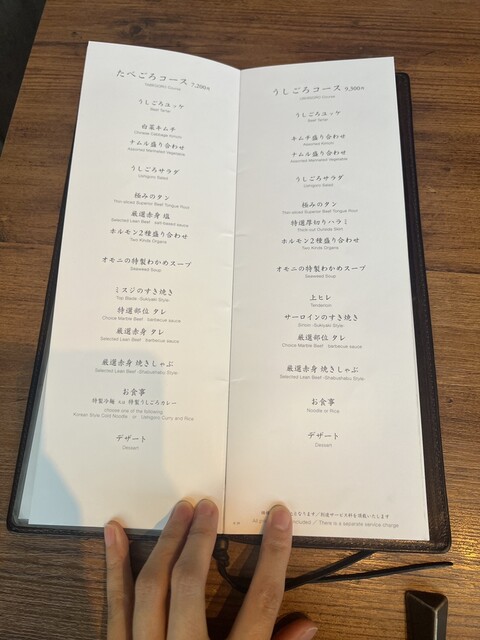 たべごろコース 7,200円
TABEGORO Course
うしごろユッケ
Beef Tartar
白菜キムチ
Chinese Cabbage Kimchi
ナムル盛り合わせ
Assorted Marinated Vegetable
うしごろサラダ
Ushigoro Salad
極みのタン
Thin-sliced Superior Beef Tongue Root
厳選赤身 塩
Selected Lean Beef salt-based sauce
ホルモン2種盛り合わせ
Two Kinds Organs
オモニの特製わかめスープ
Seaweed Soup
ミスジのすき焼き
Top Blade -Sukiyaki Style-
特選部位 タレ
Choice Marble Beef barbecue sauce
厳選赤身 タレ
Selected Lean Beef barbecue sauce
厳選赤身 焼きしゃぶ
Selected Lean Beef -Shabushabu Style-
お食事
特製冷麺 又は 特製うしごろカレー
choose one of the following
Korean Style Cold Noodle or Ushigoro Curry and Rice
デザート
Dessert
うしごろコース 9,300円
USHIGORO Course
うしごろユッケ
Beef Tartar
キムチ盛り合わせ
Assorted Kimchi
ナムル盛り合わせ
Assorted Marinated Vegetable
うしごろサラダ
Ushigoro Salad
極みのタン
Thin-sliced Superior Beef Tongue Root
特選厚切りハラミ
Thick-cut Outside Skirt
ホルモン2種盛り合わせ
Two Kinds Organs
オモニの特製わかめスープ
Seaweed Soup
上ヒレ
Tenderloin
サーロインのすき焼き
Sirloin -Sukiyaki Style-
特選部位 タレ
Choice Marble Beef barbecue sauce
厳選赤身 焼きしゃぶ
Selected Lean Beef -Shabushabu Style-
お食事
Noodle or Rice
デザート
Dessert
となります／別途サービス料を頂戴いたします
All included ／ There is a separate service charge